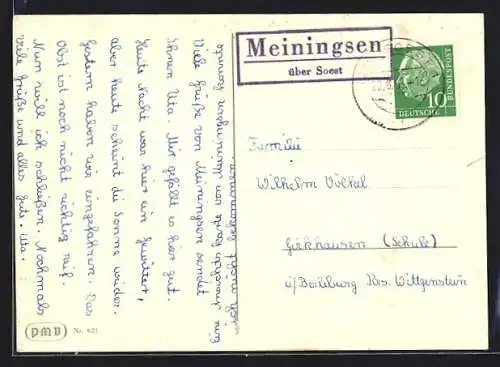 Meiningsen
über Soest
10
DEUTSCHE
BUNDESPOST
Familie
Wilhelm Völkel
Girkhausen (Schule)
ü/Berleburg Krs. Wittgenstein
Viele Grüße von Meiningsen sendet
Ihnen Uta. Mir gefällt es hier gut.
Heute Nacht war hier ein Gewitter,
aber heute scheint die Sonne wieder.
Gestern haben wir eingefahren. Das
Obst ist noch nicht richtig reif.
Nun will ich schließen. Nochmals
viele Grüße und alles gute. Uta.
eine Ansichtskarte von Meiningsen konnte
ich nicht bekommen.
PMV Nr. 621